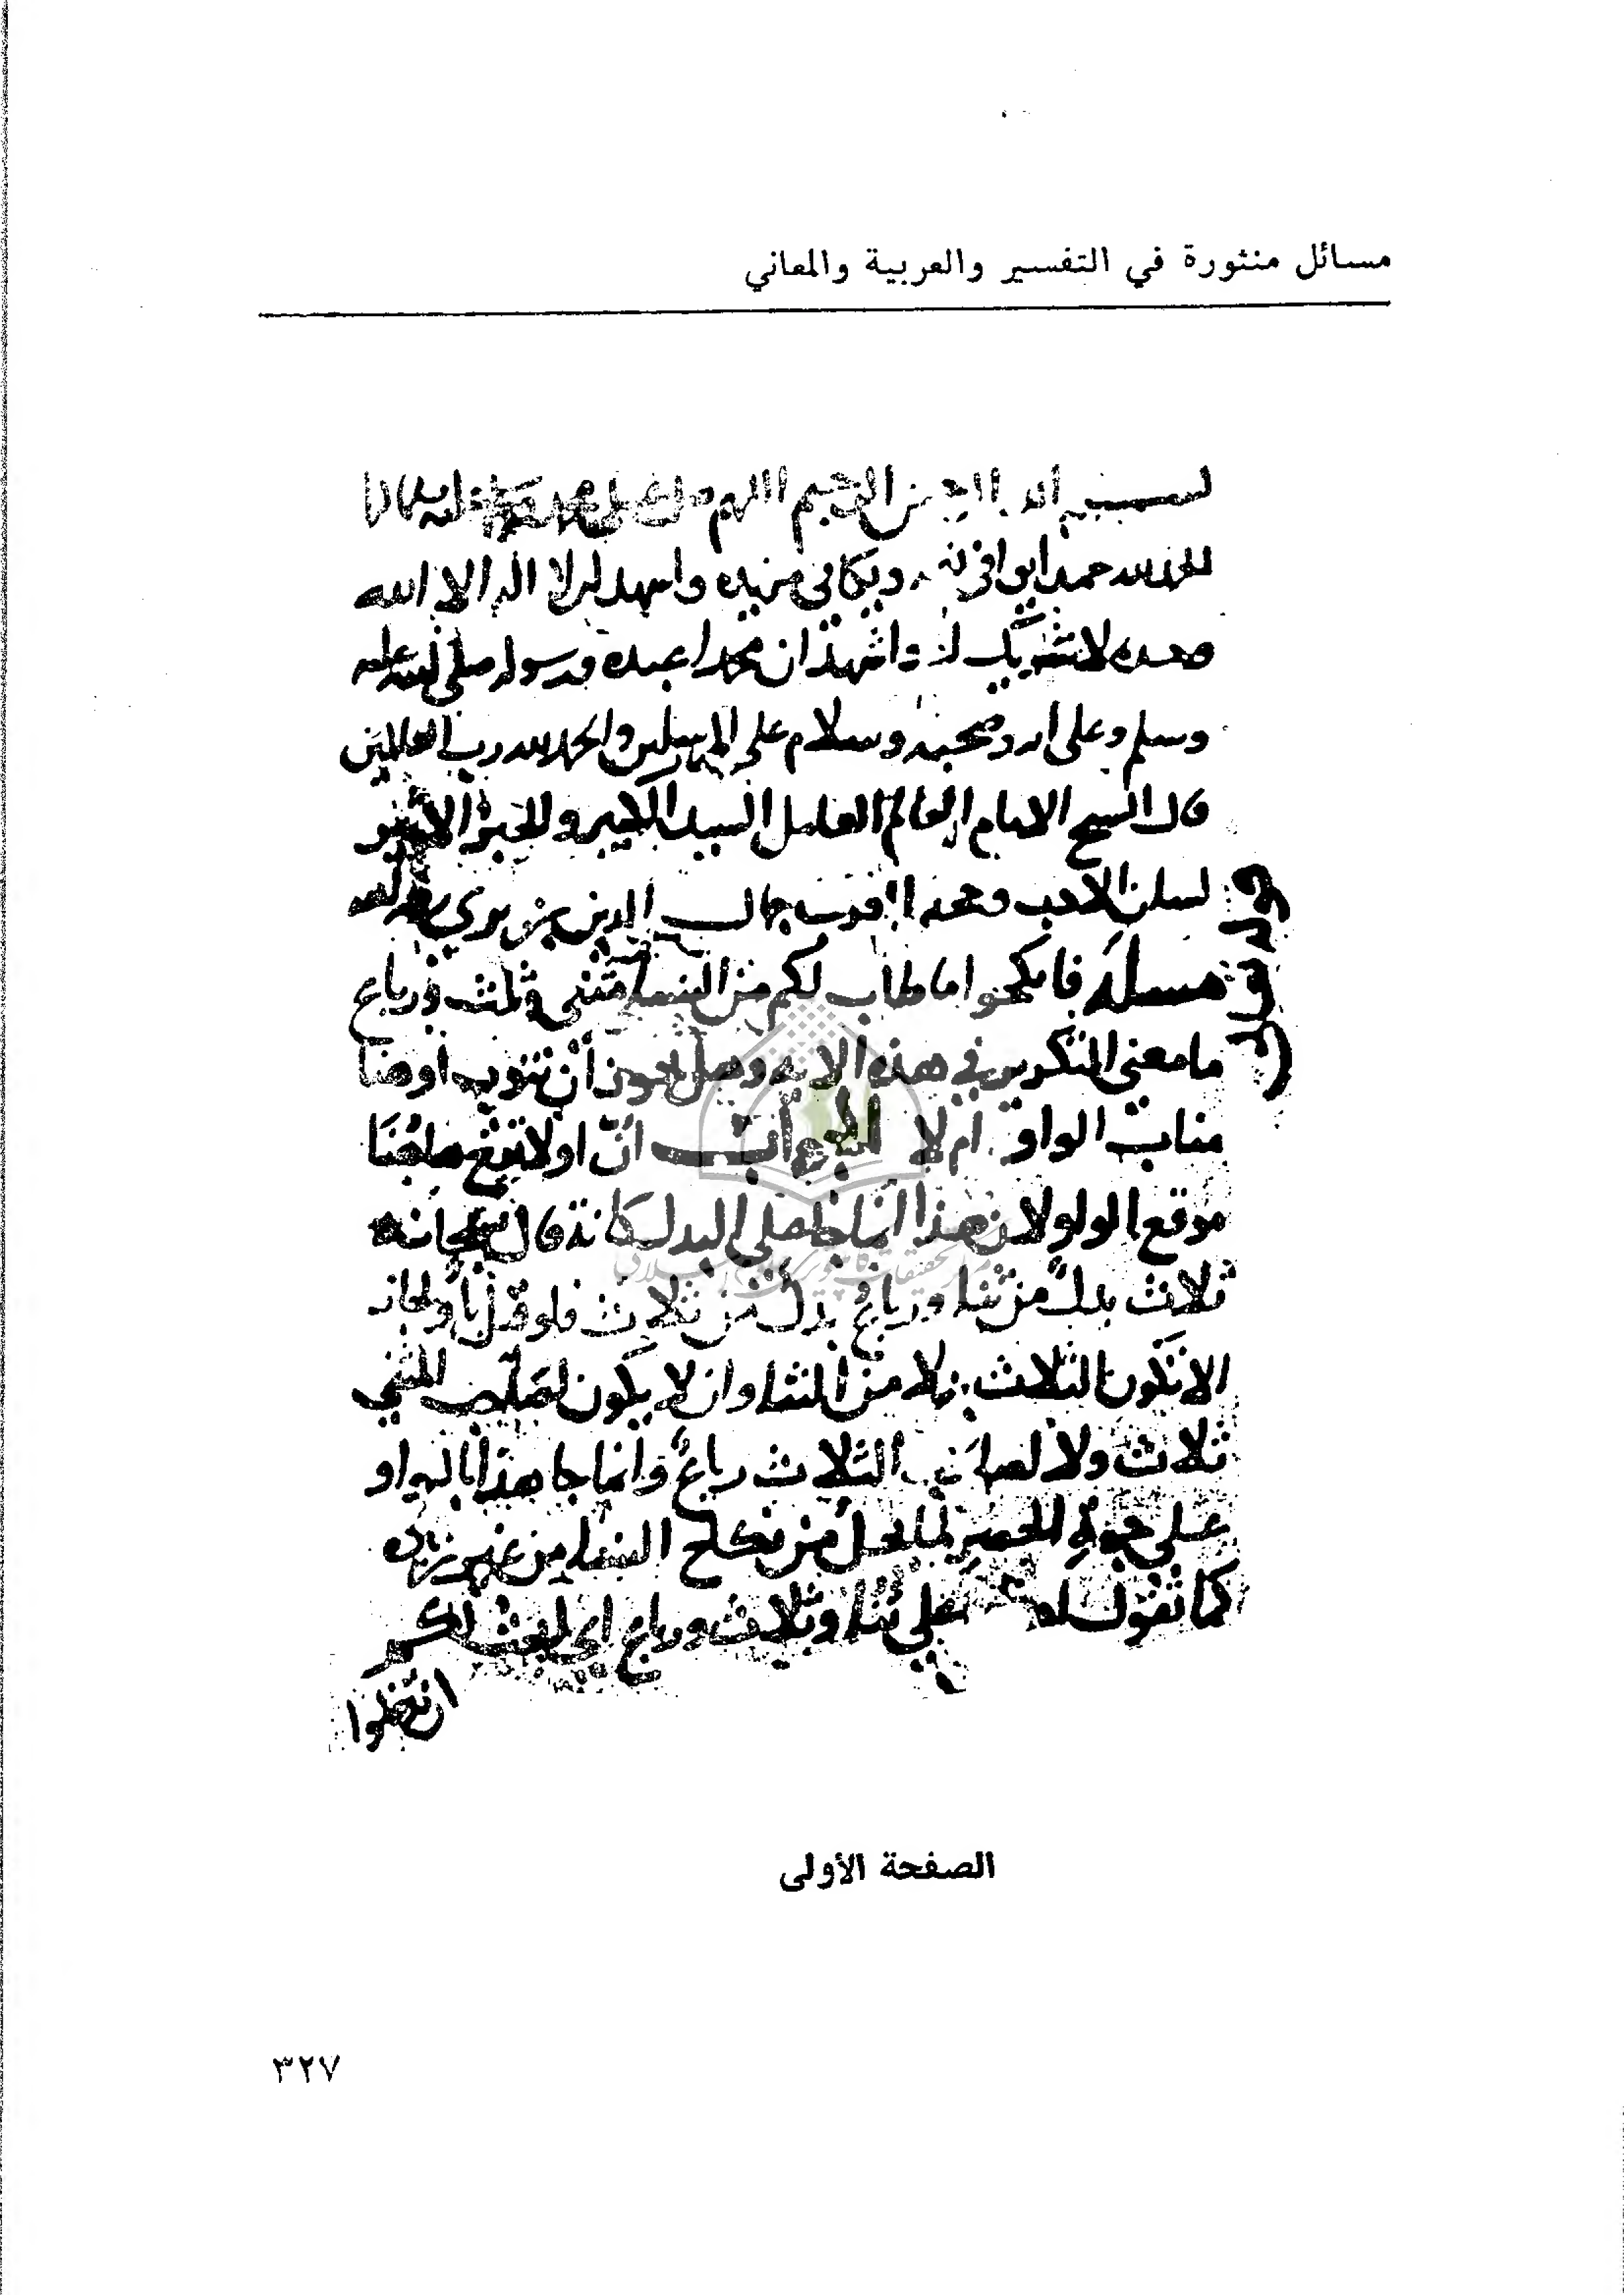 مسائل منثورة في التفسير والعربية والمعاني
بسم الله الرحمن الرحيم اللهم صل على محمد
الحمد لله حمدا يوافي نعمه ويكافي مزيده واشهد ان لا اله الا الله
وحده لا شريك له واشهد ان محمدا عبده ورسوله صلى الله عليه
وسلم وعلى اله وصحبه وسلام على المرسلين والحمد لله رب العالمين
قال الشيخ الامام العالم العامل السيد الكبير والحبر الاثير
لسان الادب وحجة العرب جمال الدين بن بري رحمه الله
مسلة فانكحوا ما طاب لكم من النسا مثنى وثلث ورباع
ما معنى التكرير في هذه الاية وهل يجوز ان تنوب او هنا
مناب الواو ام لا الجواب ان او لا تقع هاهنا
موقع الواو لان هذا انما جا على البدل كانه قال سبحانه
ثلاث بدل من ثنا ورباع بدل من ثلاث فلو قيل باو لجاز
الا تكون الثلاث بدلا من المثنا وان لا يكون لصاحب المثنى
ثلاث ولا لصاحب الثلاث رباع وانما جا هذا بالواو
على جهة الحصر لما يحل من نكاح النسا من غير زياده
كما تقول ثنا وثلاث ورباع اي
الصفحة الأولى
٣٢٧